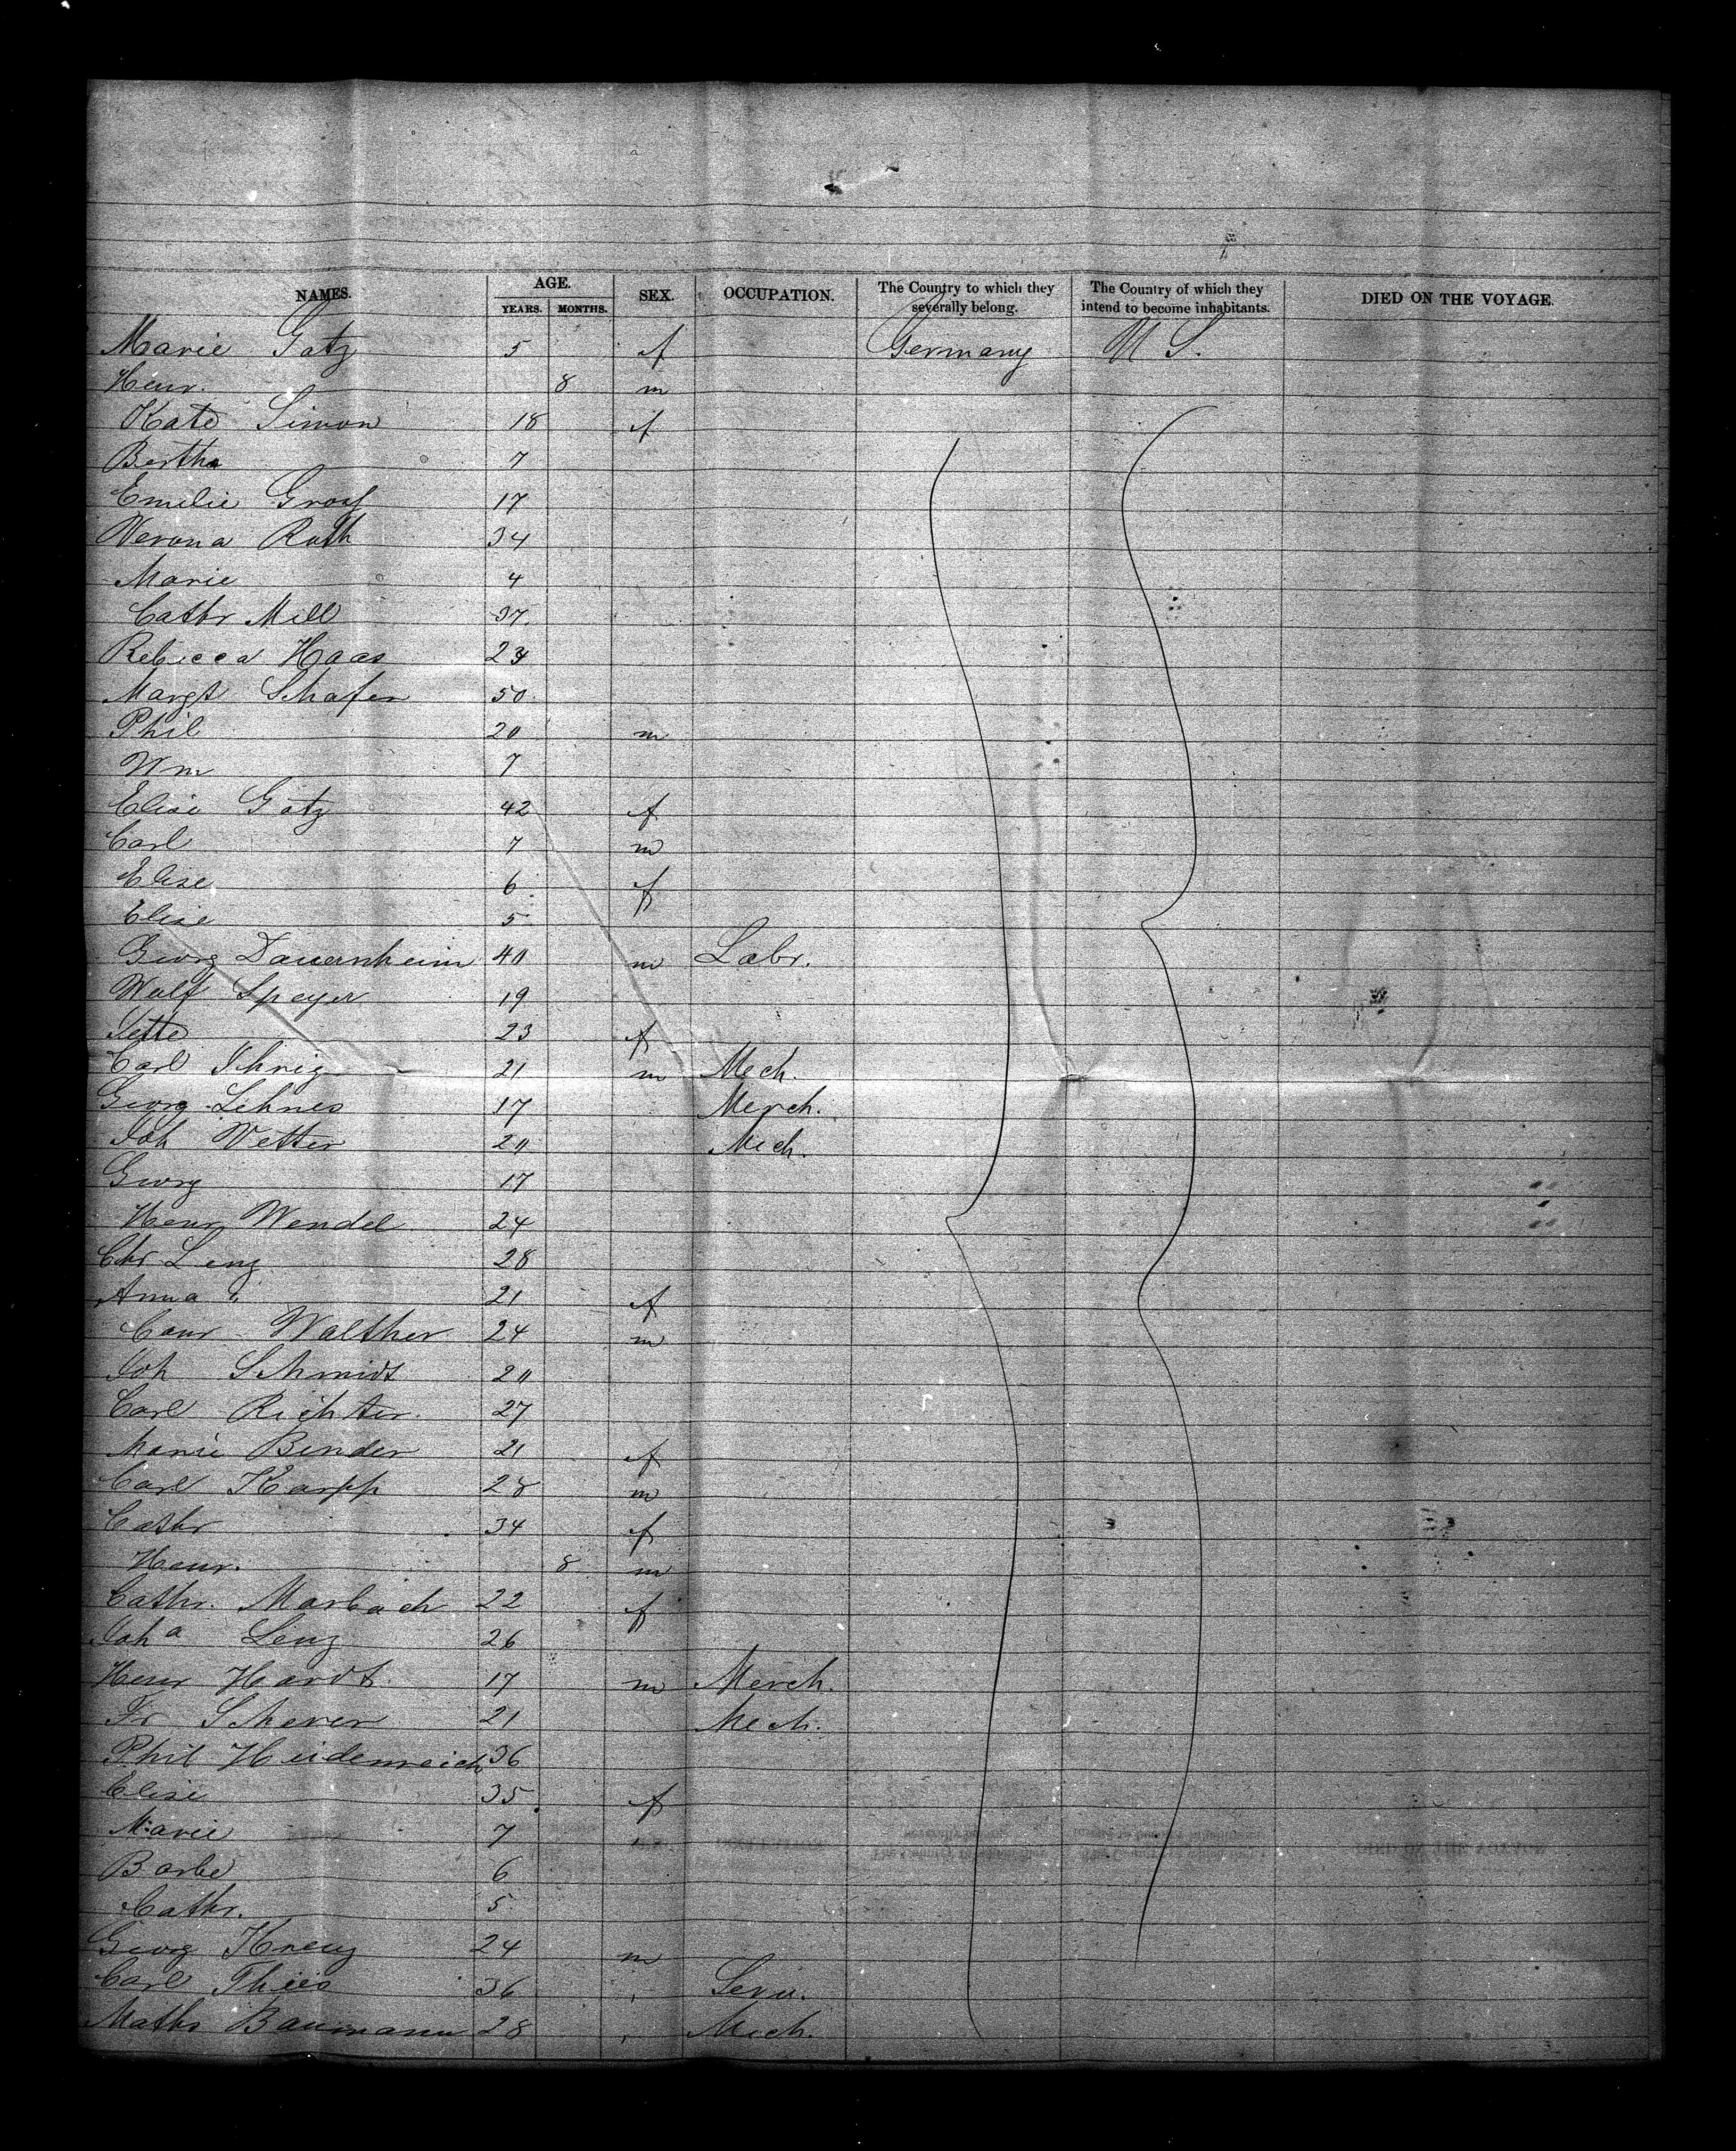 NAMES. AGE. SEX. OCCUPATION. The Country to which they severally belong. The Country of which they intend to become inhabitants. DIED ON THE VOYAGE.
YEARS. MONTHS.
Marie Gatz 5 f Germany U S.
Henr. 8 m
Kate Simon 18 f
Bertha 7
Emilie Grosz 17
Verona Ruth 34
Marie 4
Cathr Mill 37
Rebecca Haas 23
Margt Schafer 50
Phil 20 m
Wm 7
Elise Gatz 42 f
Carl 7 m
Elise 6 f
Elise 5
Georg Dauernheim 40 m Labr.
Wolf Speyer 19
Jette 23 f
Carl Ihrig 21 m Mech.
Georg Lehnes 17 Merch.
Joh Vetter 20 Mech.
Georg 17
Henr Wendel 24
Chr Lenz 28
Anna " 21 f
Conr Walther 24 m
Joh Schmidt 20
Carl Richter. 27
Marie Binder 21 f
Carl Karpp 28 m
Cathr 34 f
Henr. 8 m
Cathr. Marbach 22 f
Joha Lenz 26
Henr Hardt. 17 m Merch.
Fr Scherer 21 Mech.
Phil Heidenreich 36
Elise 35 f
Marie 7
Barbe 6
Cathr. 5
Georg Kreuz 24 m
Carl Thies 36 Serv.
Maths Baumann 28 Mech.